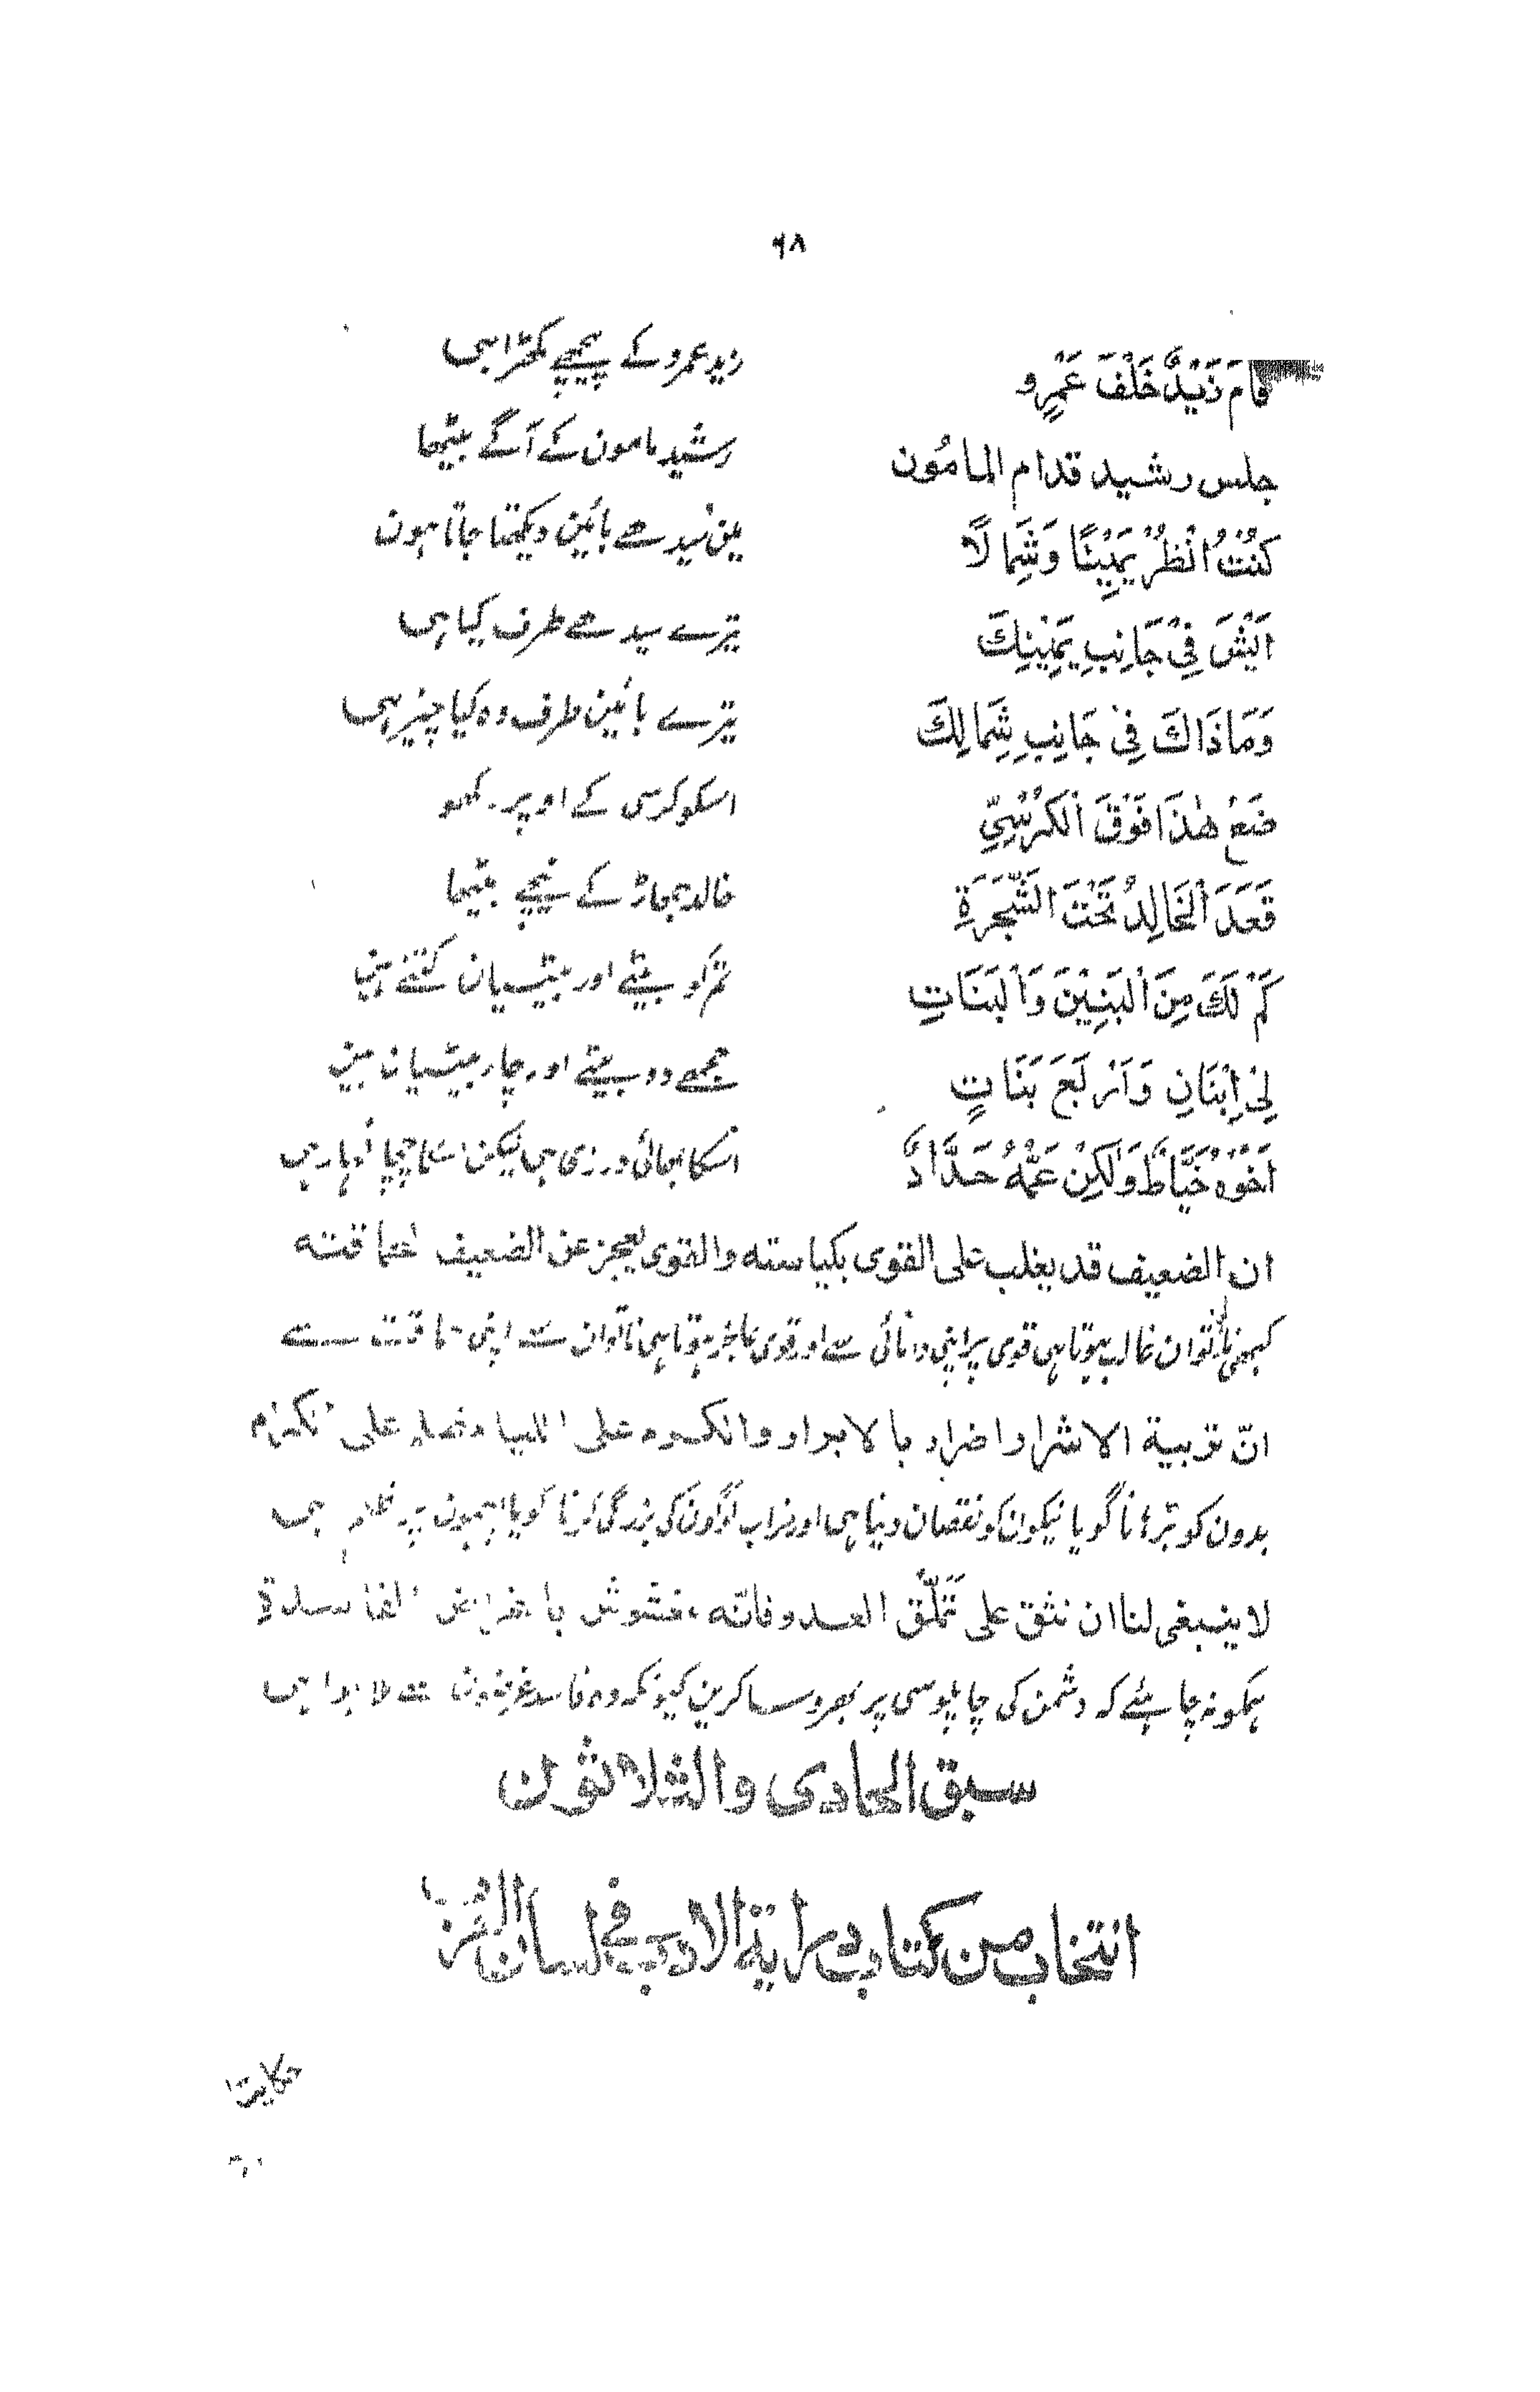 ۶۸
قَامَ زَيْدٌ خَلْفَ عَمْرٍو زید عمرو کے پیچھے کھڑا ہی
جلس رشيد قدام المامُون رشید مامون کے آگے بیٹھا
كُنْتُ انْظُرُ يَمِيْنًا وَشِمَالًا مین سیدھے بائین دیکھتا جاتا ہون
اَيْشَ فِيْ جَانِبِ يَمِيْنِكَ تیرے سیدھے طرف کیا ہی
وَمَا ذَاكَ فِيْ جَانِبِ شِمَالِكَ تیرے بائین طرف وہ کیا چیز ہی
ضَعْ هٰذَا فَوْقَ الْكُرْسِيِّ اسکو کرسی کے اوپر رکھو
قَعَدَ الْخَالِدُ تَحْتَ الشَّجَرَةِ خالد جھاڑ کے نیچے بیٹھا
كَمْ لَكَ مِنَ الْبَنِيْنَ وَالْبَنَاتِ تمکو بیٹے اور بیٹیان کتنے ہین
لِيْ اِبْنَانِ وَاَرْبَعَ بَنَاتٍ مجھے دو بیٹے اور چار بیٹیان ہین
اَخُوْهُ خَيَّاطٌ وَلٰكِنْ عَمُّهُ حَدَّادٌ اُسکا بھائی درزی ہی لیکن اسکا چچا لُہار ہی
ان الضعيف قد يغلب على القوى بكياسته والقوى يعجز عن الضعيف لحماقته
کبھی ناتوان غالب ہوتا ہی قوی پر اپنی دانائی سے اور قوی عاجز ہوتا ہی ناتوان سے اپنی حماقت سے
انّ تربية الاشرار اضرار بالابرار والكسوه على
بدون کو گویا نیکوان کو نقصان دنیا ہی اور خراب لوگون کی بزرگی کرنا گویا اچھون پر ظلم ہی
لا ينبغى لنا ان نثق على تملّق العدو فانّه مشوش الفاسدة
ہمکو نہ چاہئے کہ دشمن کی چاپلوسی پر بھروسا کرین کیونکہ وہ فاسد غرضون سے ہی
سبق الحادى والثلاثون
انتخاب من كتاب دراية الادب فى لسان العرب
حكايت